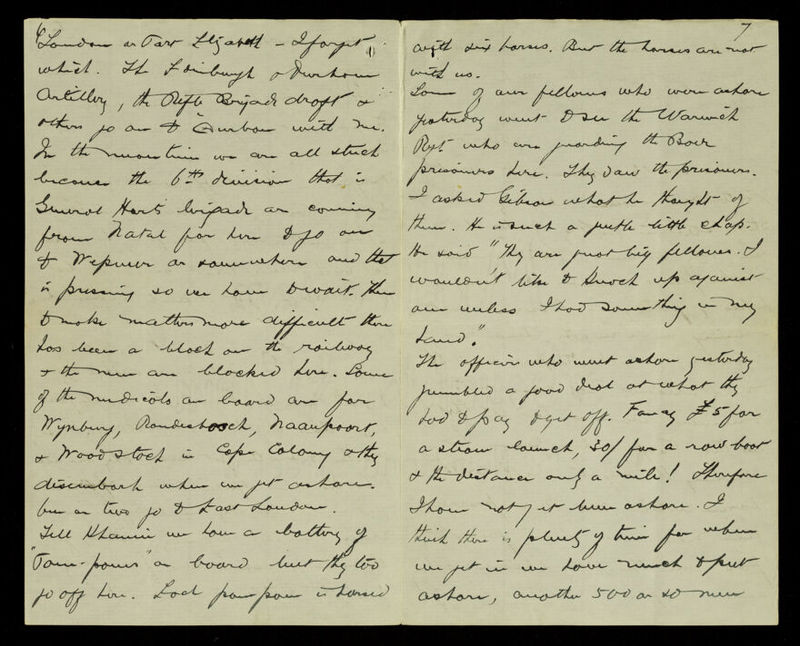 6
London or Port Elizabeth - I forget
which. The Edinburgh & Durham
Artillery, the Rifle Brigade draft &
others go on to Durban with me.
In the meantime we are all stuck
because the 6th division that is
General Hart's brigade are coming
from Natal for here to go on
to Wepener or somewhere and that
is pressing so we have to wait. Then
to make matters more difficult there
has been a block on the railway
& the men are blocked here. Some
of the medicals on board are for
Wynberg, Rondesbosch, Naauwpoort,
& Woodstock in Cape Colony & they
disembark when we get ashore.
One or two go to East London.
Tell we have a battery of
"Pom-poms" on board but they too
go off here. Each pom pom is horsed
7
with six horses. But the horses are not
with us.
Some of our fellows who were ashore
yesterday went to see the Warwick
Regt who are guarding the Boer
prisoners here. They saw the prisoners.
I asked Gibson what he thought of
them. He is such a little chap.
He said "They are great big fellows. I
wouldn't like to knock up against
one unless I had something in my
hand."
The officers who went ashore yesterday
grumbled a good deal at what they
had to pay to get off. Fancy £5 for
a steam launch, 30/ for a row boat
& the distance only a mile! Therefore
I have not yet been ashore. I
think there is plenty of time for when
we get in we have much to put
ashore, another 500 or so men